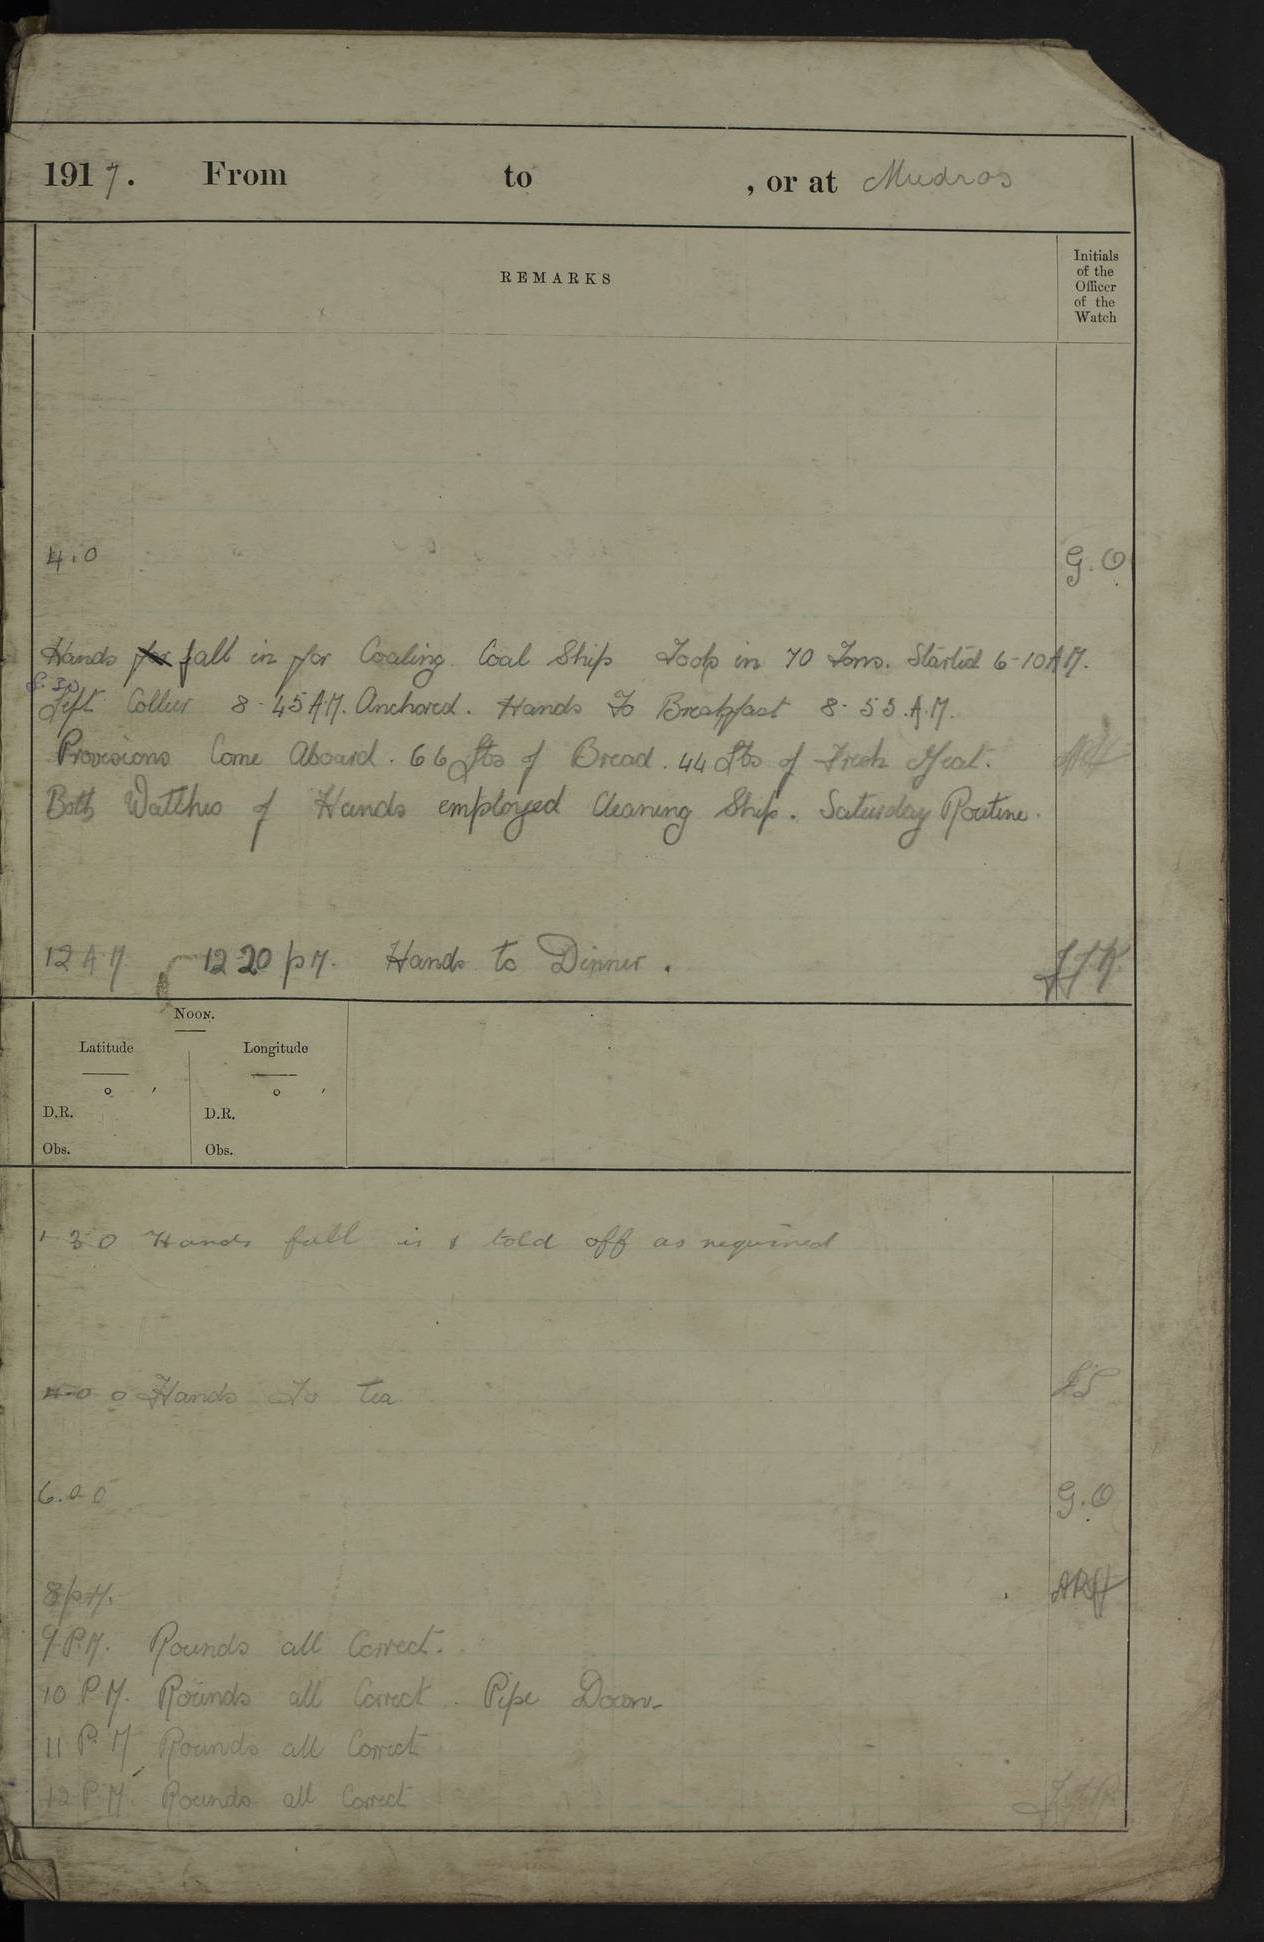 1917. From to , or at Mudros
REMARKS
Initials
of the
Officer
of the
Watch
4.0 G.O
Hands for fall in for Coaling. Coal Ship Took in 70 Tons. Started 6-10 A.M.
8.30
Left Collier 8-45 A.M. Anchored. Hands To Breakfast 8-55. A.M.
Provisions Come Aboard. 66 lbs of Bread. 44 lbs of Fresh Meat.
Both Watches of Hands employed Cleaning Ship. Saturday Routine.
12 A M 12 20 p M. Hands to Dinner.
NOON.
Latitude Longitude
° ′ ° ′
D.R. D.R.
Obs. Obs.
1 30 Hands fall in & told off as required
4-0 0 Hands To tea
6.00 G.O
8 p M.
9 P.M. Rounds all Correct.
10 P M. Rounds all Correct. Pipe Down
11 P M Rounds all Correct
12 P M. Rounds all Correct